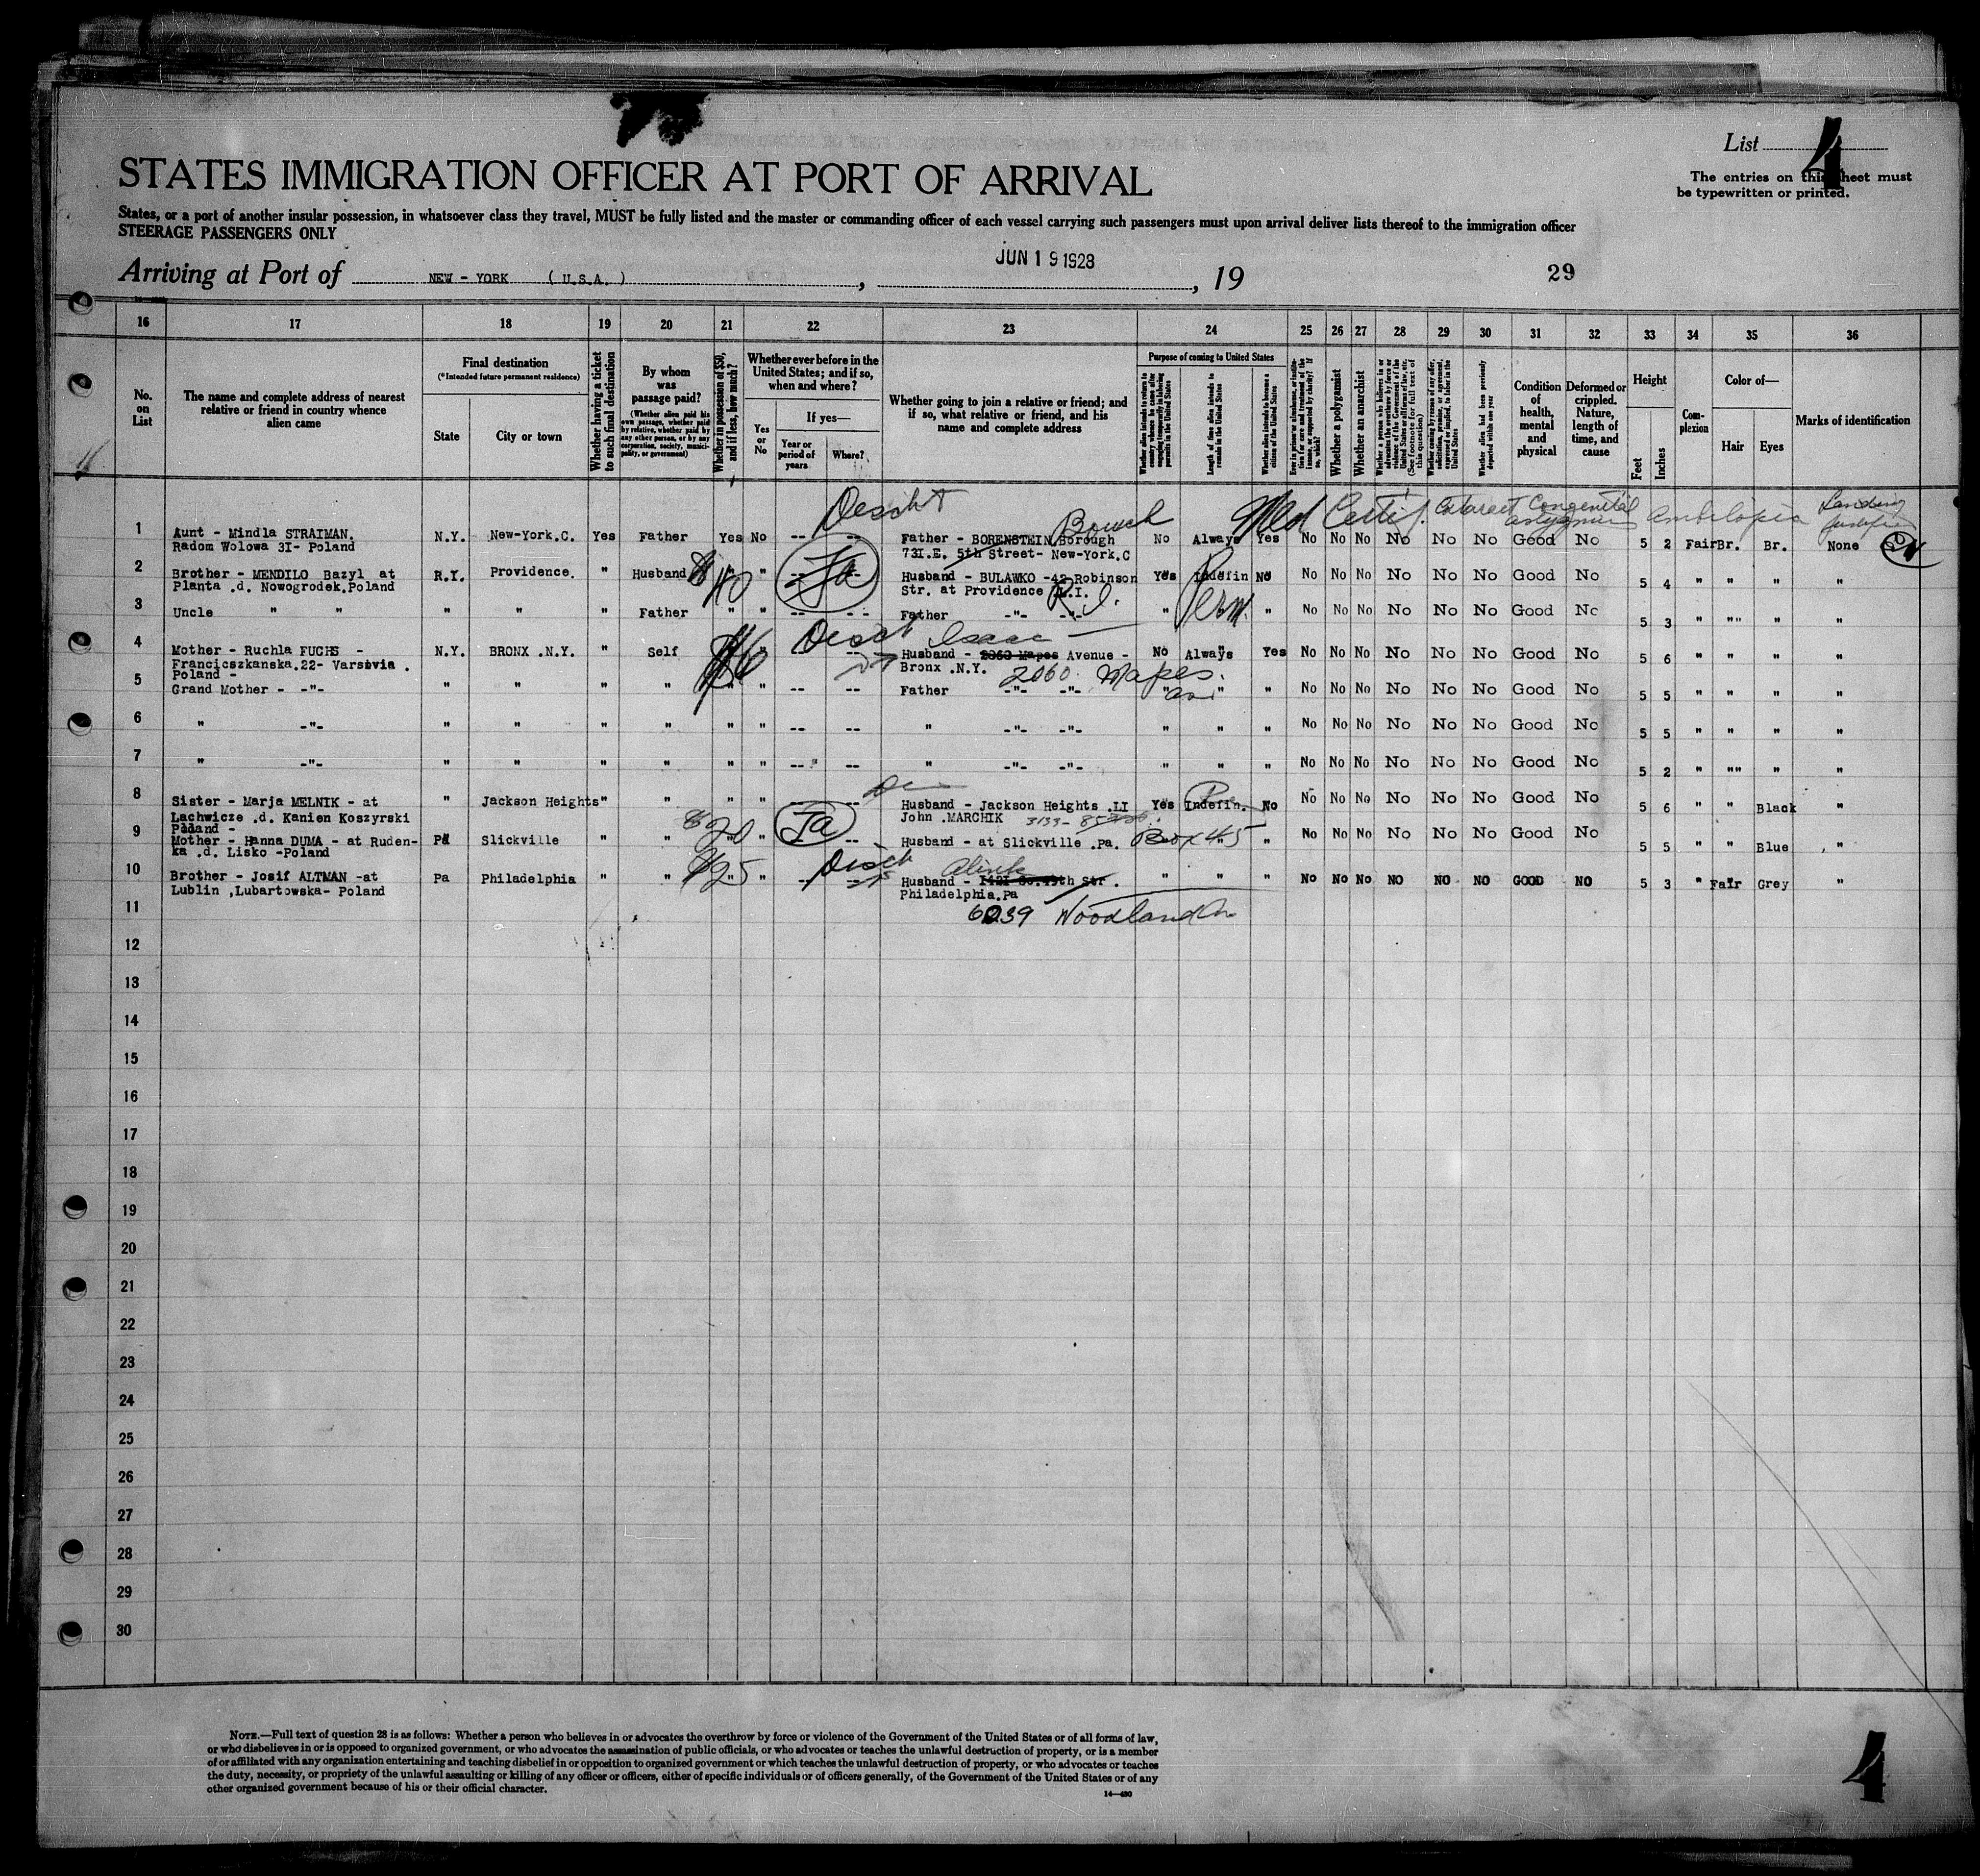 List 4
The entries on this sheet must
be typewritten or printed.
STATES IMMIGRATION OFFICER AT PORT OF ARRIVAL
States, or a port of another insular possession, in whatsoever class they travel, MUST be fully listed and the master or commanding officer of each vessel carrying such passengers must upon arrival deliver lists thereof to the immigration officer
STEERAGE PASSENGERS ONLY
JUN 19 1928
Arriving at Port of NEW - YORK ( U.S.A. ) , , 19 29
16 17 18 19 20 21 22 23 24 25 26 27 28 29 30 31 32 33 34 35 36
No. on List
The name and complete address of nearest relative or friend in country whence alien came
Final destination
(*Intended future permanent residence)
State
City or town
Whether having a ticket to such final destination
By whom was passage paid?
(Whether alien paid his own passage, whether paid by relative, whether paid by any other person, or by any corporation, society, municipality, or government)
Whether in possession of $50, and if less, how much?
Whether ever before in the United States; and if so, when and where?
Yes or No
If yes—
Year or period of years
Where?
Whether going to join a relative or friend; and if so, what relative or friend, and his name and complete address
Purpose of coming to United States
Whether alien intends to return to country whence he came after engaging temporarily in laboring pursuits in the United States
Length of time alien intends to remain in the United States
Whether alien intends to become a citizen of the United States
Whether a polygamist
Whether an anarchist
(See footnote for full text of this question)
Whether alien had been previously deported within one year
Condition of health, mental and physical
Deformed or crippled. Nature, length of time, and cause
Height
Feet
Inches
Complexion
Color of—
Hair
Eyes
Marks of identification
Descht Bouch Med Certif. Cataract Congenital Landing
1 Aunt - Mindla STRAIMAN. N.Y. New-York.C. Yes Father Yes No -- -- Father - BORENSTEIN Borough No Always Yes No No No No No No Good No 5 2 Fair Br. Br. None
Radom Wolowa 3I- Poland 73I.E. 5th Street- New-York.C
2 Brother - MENDILO Bazyl at R.I. Providence. " Husband $40 " -- -- Husband - BULAWKO -42 Robinson Yes Indefin No No No No No No No Good No 5 4 " " " "
Planta .d. Nowogrodek.Poland Str. at Providence R.I. Perm.
3 Uncle " " " " " Father " " -- -- Father -"- -"- " " No No No No No No Good No 5 3 " "" " "
Descht Isaac
4 Mother - Ruchla FUCHS - N.Y. BRONX .N.Y. " Self " -- Husband - 2063 Mapes Avenue - No Always Yes No No No No No No Good No 5 6 " " " "
Franciszkanska.22- Varsovia . Bronx .N.Y. 2060 Mapes
Poland -
5 Grand Mother - -"- " " " " " " -- -- Father -"- -"- " " " No No No No No No Good No 5 5 " " " "
6 " -"- " " " " " " -- -- " -"- -"- " " " No No No No No No Good No 5 5 " " " "
7 " -"- " " " " " " -- -- " -"- -"- " " " No No No No No No Good No 5 2 " "" " "
8 Sister - Marja MELNIK - at " Jackson Heights " " " " -- -- Husband - Jackson Heights .LI Yes Indefin. No No No No No No No Good No 5 6 " " Black "
Lachwicze .d. Kanien Koszyrski John .MARCHIK 3133-
Poland -
9 Mother - Hanna DUMA - at Ruden- Pa Slickville " " $20 " Husband - at Slickville .Pa. Box 45 " No No No No No No Good No 5 5 " " Blue "
ka .d. Lisko -Poland
10 Brother - Josif ALTMAN -at Pa Philadelphia " " $25 " -- Husband - 1421 So.49th Str . " " " No No No NO NO NO GOOD NO 5 3 " Fair Grey "
Lublin ,Lubartowska- Poland Philadelphia.Pa
11 6039 Woodland
12
13
14
15
16
17
18
19
20
21
22
23
24
25
26
27
28
29
30
NOTE.—Full text of question 28 is as follows: Whether a person who believes in or advocates the overthrow by force or violence of the Government of the United States or of all forms of law,
or who disbelieves in or is opposed to organized government, or who advocates the assassination of public officials, or who advocates or teaches the unlawful destruction of property, or is a member
of or affiliated with any organization entertaining and teaching disbelief in or opposition to organized government or which teaches the unlawful destruction of property, or who advocates or teaches
the duty, necessity, or propriety of the unlawful assaulting or killing of any officer or officers, either of specific individuals or of officers generally, of the Government of the United States or of any
other organized government because of his or their official character.
14—480
4